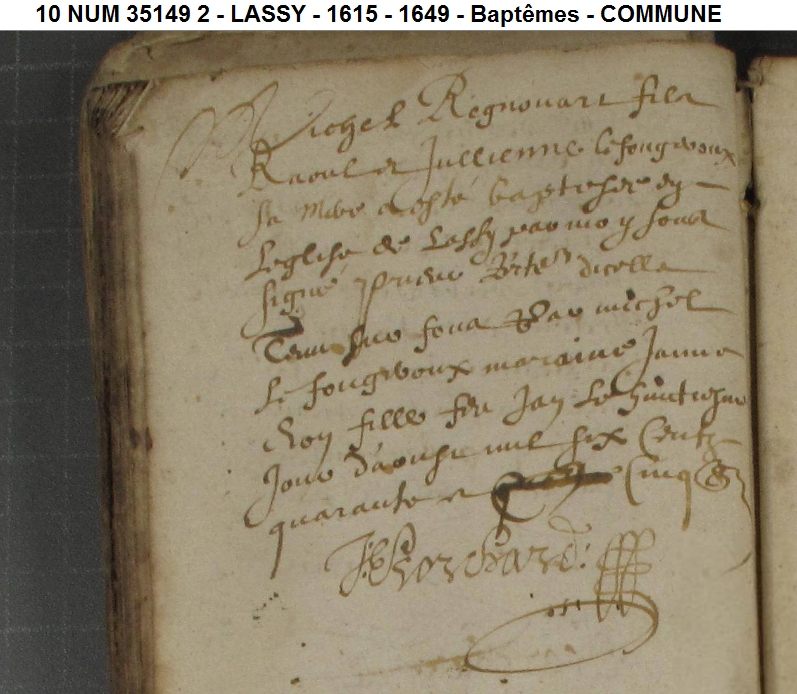 10 NUM 35149 2 - LASSY - 1615 - 1649 - Baptêmes - COMMUNE
Michel Regnouart filz
Raoul et Jullienne lefongeroux
sa mere a esté baptiser en
Leglise de Lassy par moy soub
signé prieur dicelle
Tenu sur fons par michel
le fongeroux maraine Janne
fille feu Jan Le huictiesme
Jour d'aoust mil six Centz
quarante et Cinq